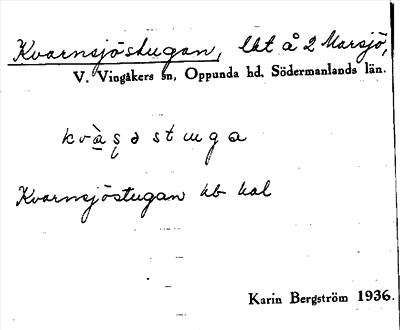 Kvarnsjöstugan, lht å 2 Marsjö,
V. Vingåkers sn, Oppunda hd, Södermanlands län.
Kvarnsjöstugan hb hal
Karin Bergström 1936.